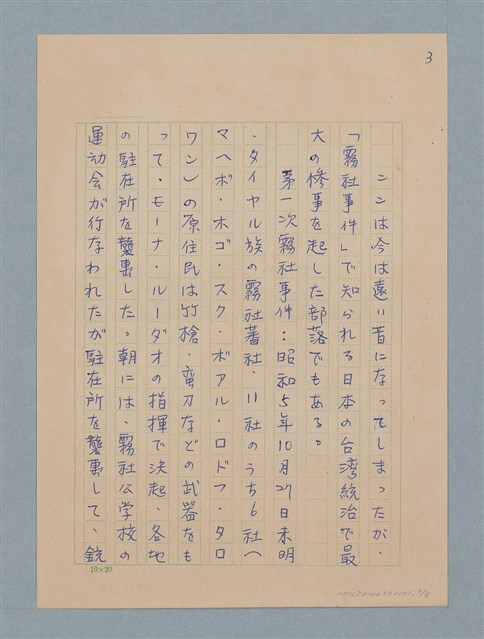 3
ここは今は遠い昔になってしまったが、
「霧社事件」で知られる日本の台湾統治で最
大の惨事を起した部落でもある。
第一次霧社事件：昭和5年10月27日未明
、タイヤル族の霧社蕃社、11社のうち6社（
マヘボ・ホゴ・スク・ボアル・ロドフ・タロ
ワン）の原住民は竹槍・蛮刀などの武器をも
って、モーナ・ルーダオの指揮で決起、各地
の駐在所を襲撃した。朝には、霧社公学校の
運动会が行なわれたが駐在所を襲撃して、銃
10×20